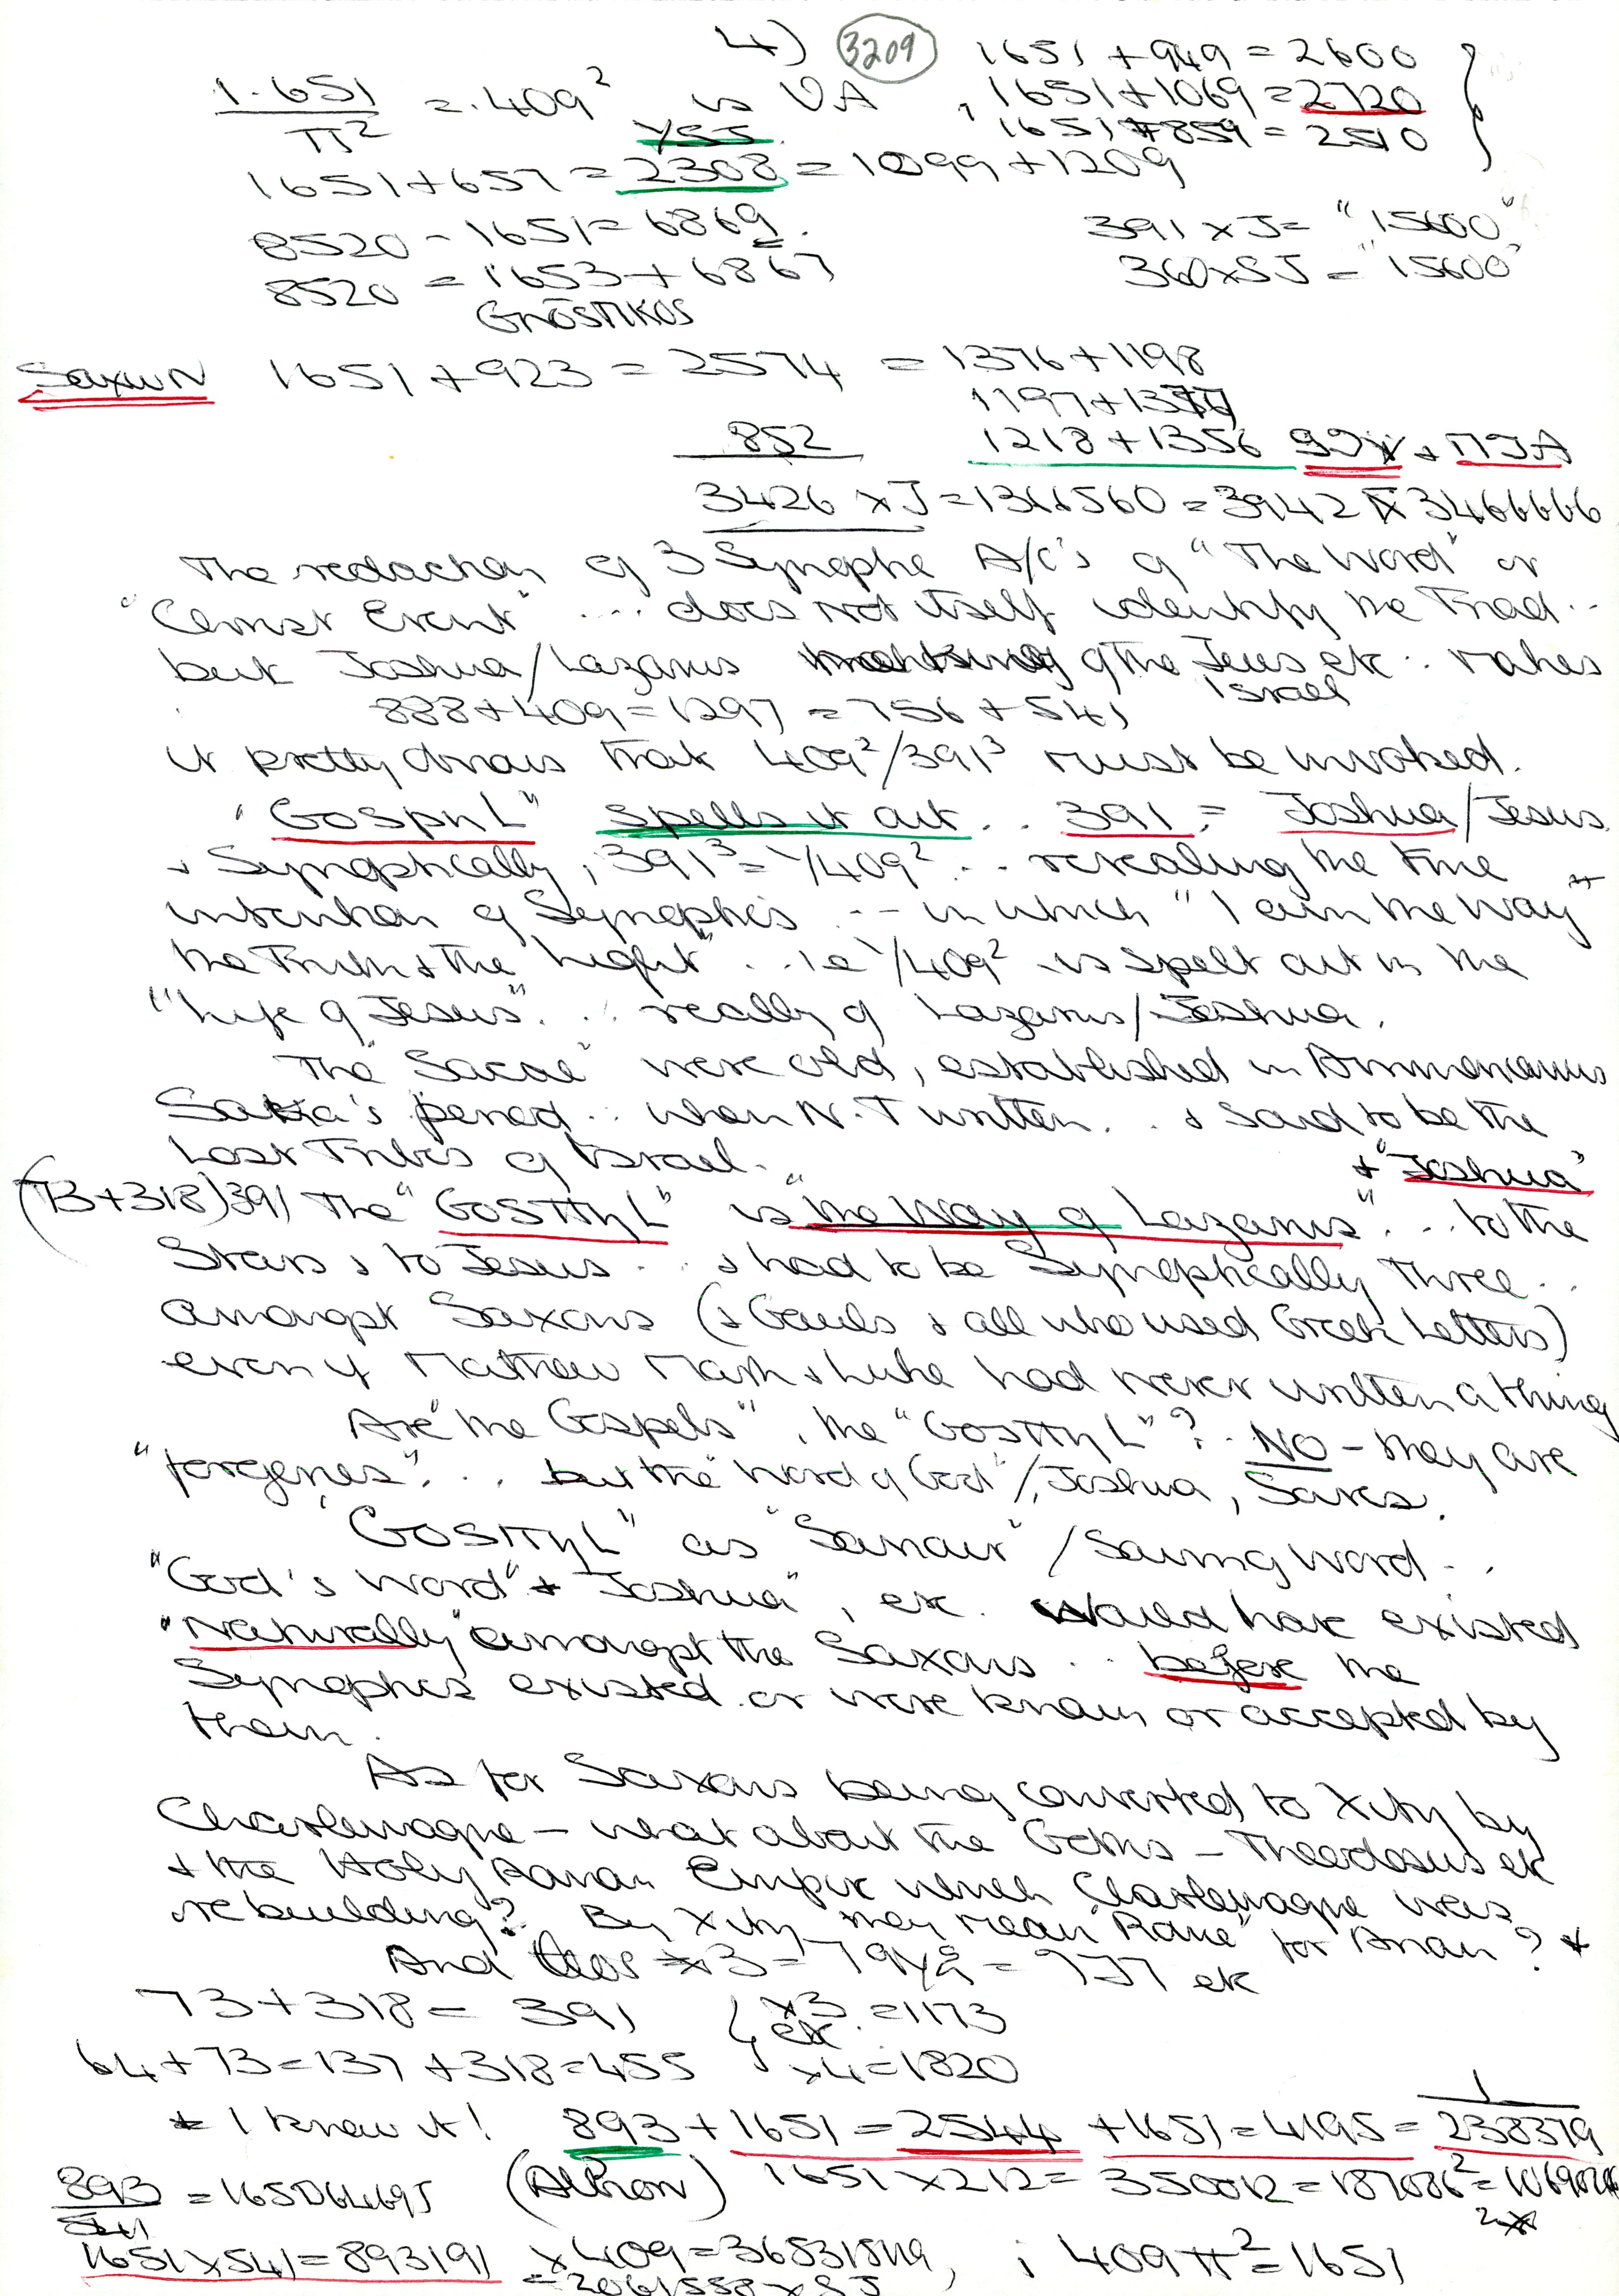 4) 3209 1651 + 949 = 2600
1.651 / π² = .409² is VA, 1651 + 1069 = 2720
YSJ 1651 + 859 = 2510
1651 + 657 = 2308 = 1099 + 1209
8520 - 1651 = 6869. 391 x J = "15600"
8520 = 1653 + 6867 360 x SJ = "15600"
GNOSTIKOS
SaxwN 1651 + 923 = 2574 = 1376 + 1198
1197 + 1377
852 1218 + 1356
3426 x J = 1366560 = 3942 x 3466666
The redaction of 3 Synoptic A/C's of "The Word" or
"Christ Event" ... does not itself identify the Triad..
but Joshua/Lazarus of the Jews etc.. makes
888 + 409 = 1297 = 756 + 541, Israel
it pretty obvious that 409²/391³ must be invoked.
"GOSPηL" spells it out.. 391 = Joshua/Jesus.
+ Synoptically, 391³ = 1/409² ... revealing the true
intention of Synoptics -- in which "I am the Way
the Truth + the Light" .. ie 1/409² is spelt out in the
"Life of Jesus". .. really of Lazarus/Joshua.
The "Sacae" were old, established in Ammonianus
Sakka's period.. when N.T written.. + said to be the
Lost Tribes of Israel. + "Joshua"
(73+318) 391 The "GOSΠηL" is "the Way of Lazarus" ... to the
Stars + to Jesus .. + had to be Synoptically three..
amongst Saxons (+ Gauls + all who used Greek Letters)
even if Mathew Mark + Luke had never written a thing
Are "the Gospels", the "GOSΠηL"? NO - they are
"forgeries". .. but the "Word of God"/, Joshua, Saves.
"GOSΠηL" as "Saviour"/Saving Word..
"God's Word" + "Joshua", etc. would have existed
"Naturally" amongst the Saxons .. before the
Synoptics existed or were known or accepted by
them.
As for Saxons being converted to Xity by
Charlemagne - what about the Goths - Theodosus etc
+ the Holy Roman Empire which Charlemagne was
rebuilding? By Xity they mean "Rome" for Arian? *
And x 3 = = 737 etc
73 + 318 = 391 x3 = 1173
etc.
64 + 73 = 137 + 318 = 455 x4 = 1820
* I knew it! 893 + 1651 = 2544 + 1651 = 4195 = 1/238379
893/541 = 165064695 (Albion) 1651 x 212 = 350012 = 187086² =
1651 x 541 = 893191 x 409 = 365315119, ; 409π² = 1651
= 2061558 x SJ